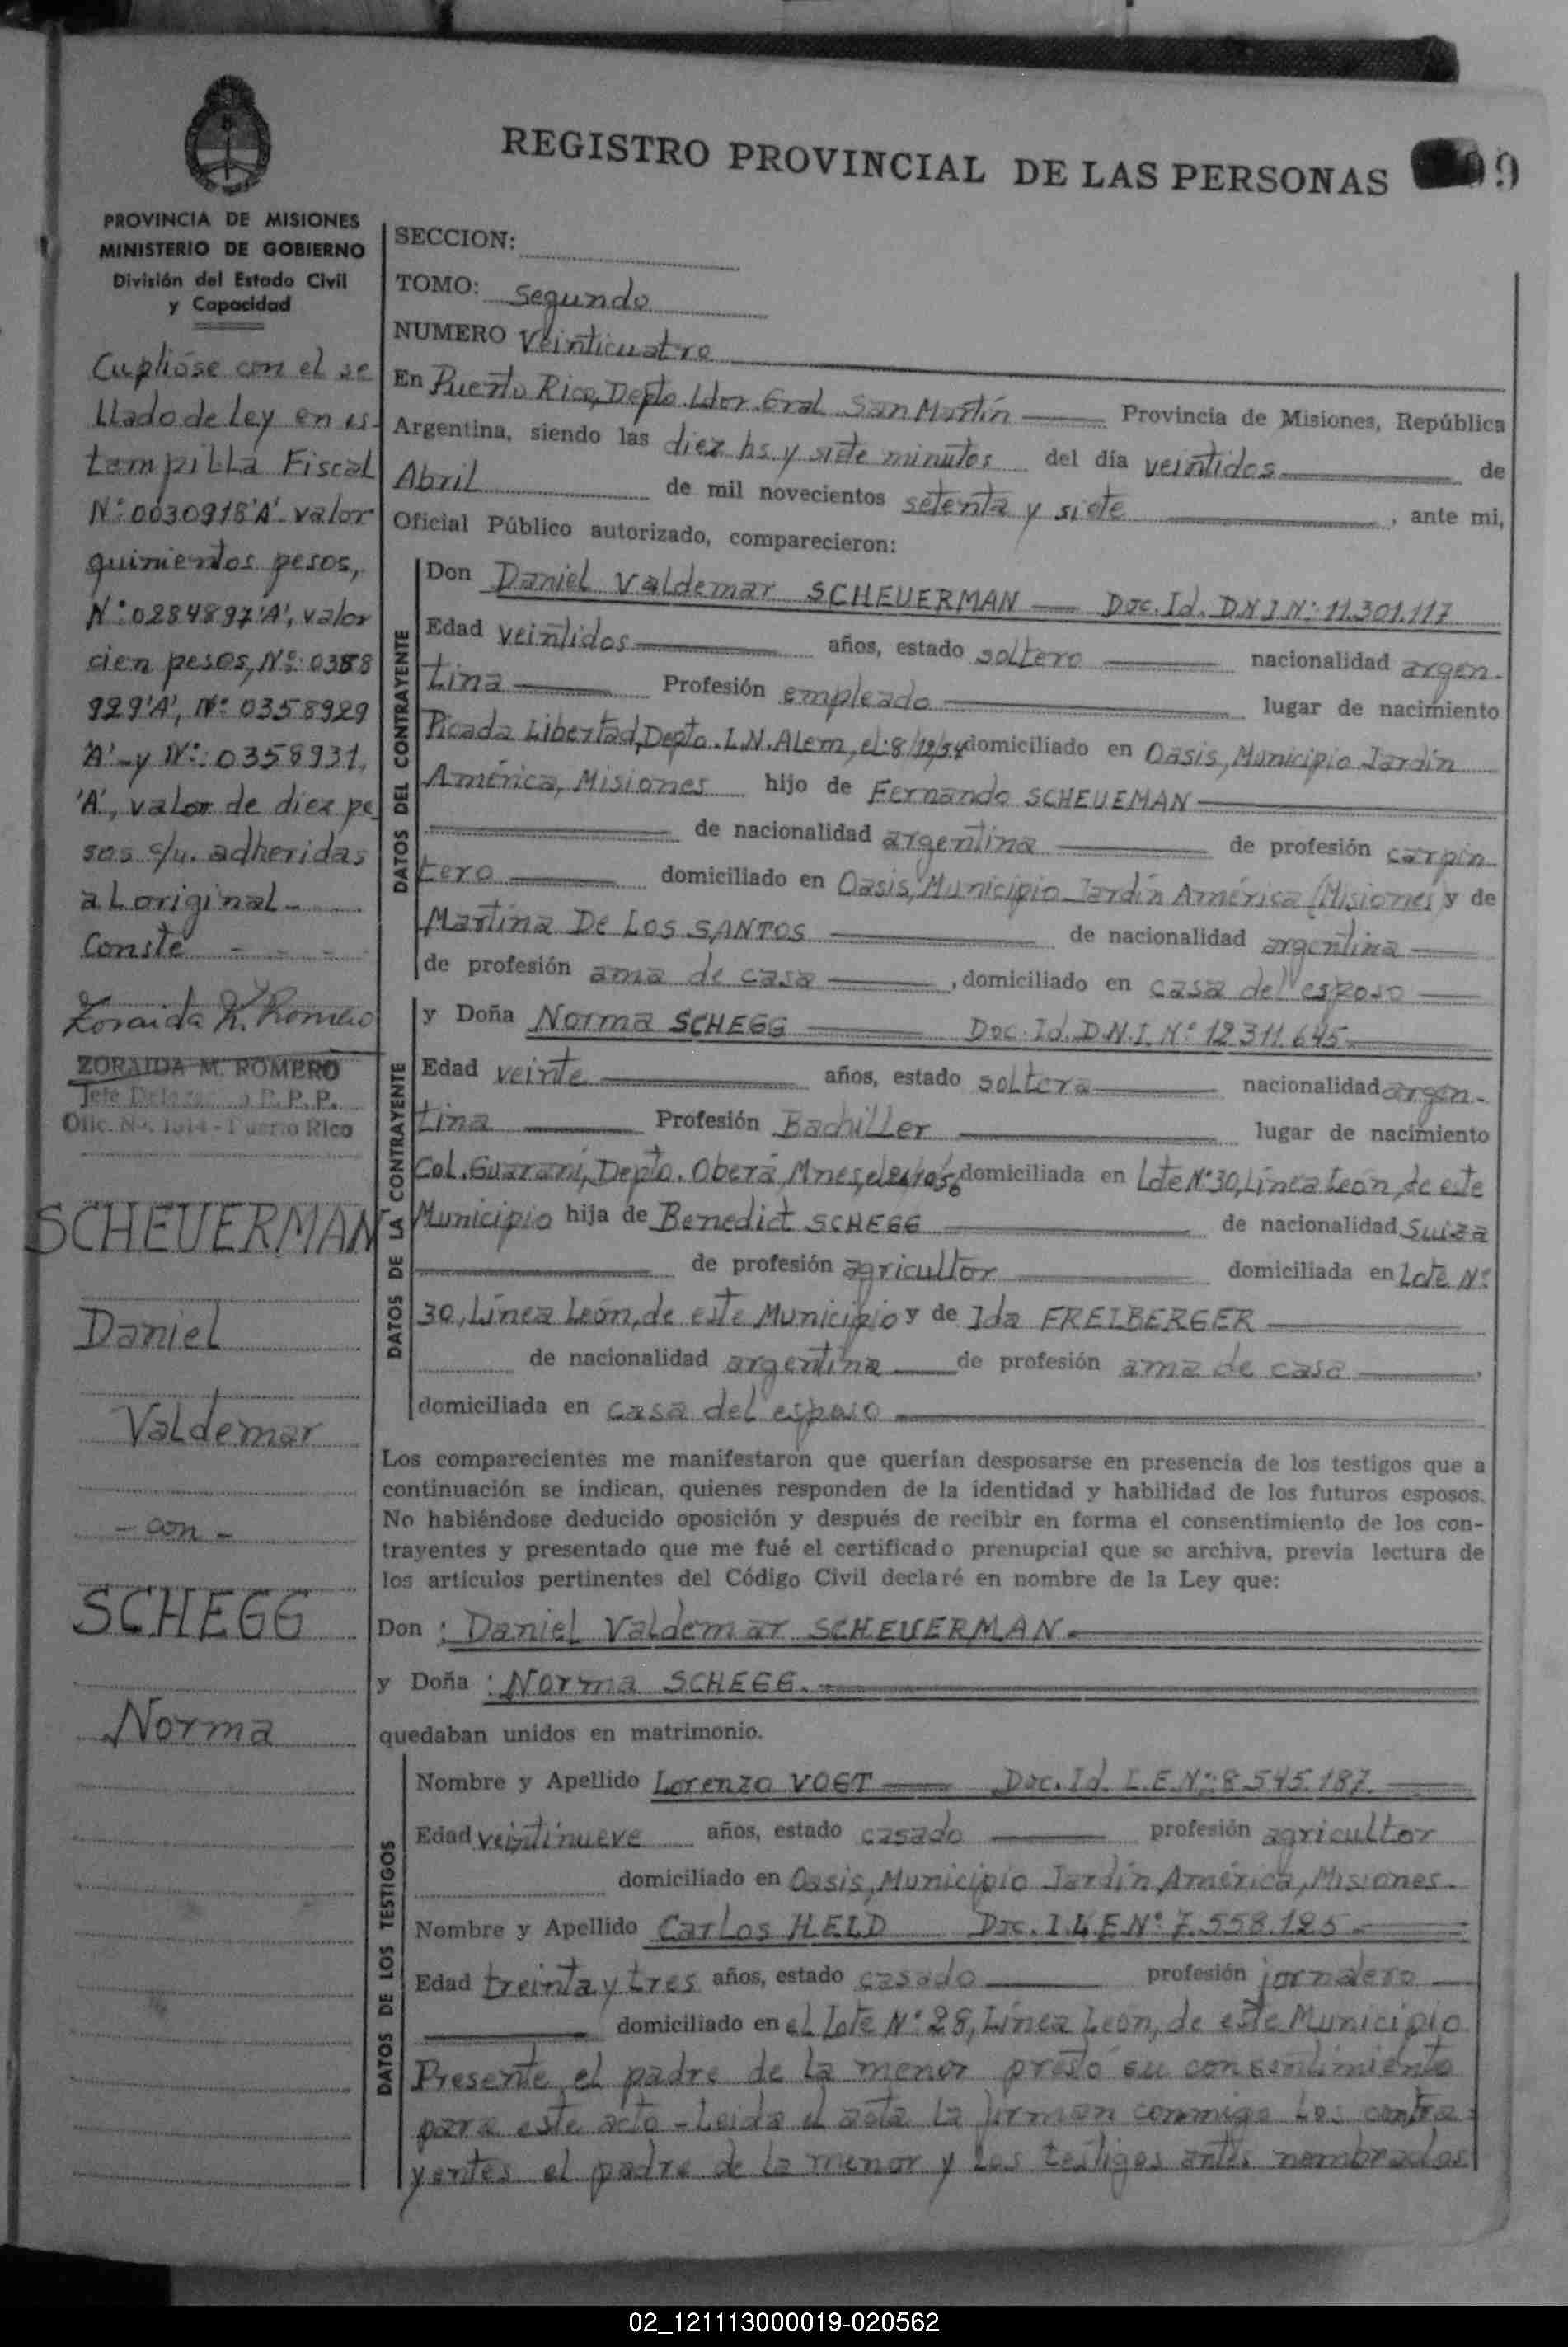 REGISTRO PROVINCIAL DE LAS PERSONAS 99
PROVINCIA DE MISIONES
MINISTERIO DE GOBIERNO
División del Estado Civil
y Capacidad
Cuplióse con el se
llado de Ley en es-
tampilla Fiscal
N°: 0030918'A'- valor
quinientos pesos,
N°: 0284897'A', valor
cien pesos, N°: 0358
929'A', N°: 0358929
'A'-y N°: 0358931,
'A', valor de diez pe
sos c/u. adheridas
al original-
Conste - - -
Zoraida M. Romero
ZORAIDA M. ROMERO
Jefe Delegación R. P. P.
Ofic. No. 1614 - Puerto Rico
SCHEUERMAN
Daniel
Valdemar
- con -
SCHEGG
Norma
SECCION:
TOMO: segundo
NUMERO Veinticuatro
En Puerto Rico, Depto. Ldor. Gral. San Martín Provincia de Misiones, República
Argentina, siendo las diez hs. y siete minutos del día veintidos de
Abril de mil novecientos setenta y siete, ante mi,
Oficial Público autorizado, comparecieron:
DATOS DEL CONTRAYENTE
Don Daniel Valdemar SCHEUERMAN Doc. Id. D.N.I N°: 11.301.117
Edad veintidos años, estado soltero nacionalidad argen-
tina Profesión empleado lugar de nacimiento
Picada Libertad, Depto. L.N. Alem, el: 8/12/54 domiciliado en Oasis, Municipio Jardín
América, Misiones hijo de Fernando SCHEUEMAN
de nacionalidad argentina de profesión carpin-
tero domiciliado en Oasis, Municipio Jardín América (Misiones) y de
Martina De Los SANTOS de nacionalidad argentina
de profesión ama de casa, domiciliado en casa del esposo
DATOS DE LA CONTRAYENTE
y Doña Norma SCHEGG Doc. Id. D.N.I. N°: 12.311.645
Edad veinte años, estado soltera nacionalidad argen-
tina Profesión Bachiller lugar de nacimiento
Col. Guaraní, Depto. Oberá, Mnes, domiciliada en Lote N° 30, Línea León, de este
Municipio hija de Benedict SCHEGG de nacionalidad Suiza
de profesión agricultor domiciliada en Lote N°
30, Línea León, de este Municipio y de Ida FREIBERGER
de nacionalidad argentina de profesión ama de casa,
domiciliada en casa del esposo
Los comparecientes me manifestaron que querían desposarse en presencia de los testigos que a
continuación se indican, quienes responden de la identidad y habilidad de los futuros esposos.
No habiéndose deducido oposición y después de recibir en forma el consentimiento de los con-
trayentes y presentado que me fué el certificado prenupcial que se archiva, previa lectura de
los artículos pertinentes del Código Civil declaré en nombre de la Ley que:
Don : Daniel Valdemar SCHEUERMAN.
y Doña : Norma SCHEGG.
quedaban unidos en matrimonio.
DATOS DE LOS TESTIGOS
Nombre y Apellido Lorenzo VOGT Doc. Id. L.E. N°: 8.545.187.
Edad veintinueve años, estado casado profesión agricultor
domiciliado en Oasis, Municipio Jardín América, Misiones.
Nombre y Apellido Carlos HELD Doc. I. L.E N° 7.558.125
Edad treinta y tres años, estado casado profesión jornalero
domiciliado en el Lote N° 28, Línea León, de este Municipio
Presente el padre de la menor prestó su consentimiento
para este acto - Leida el acta la firman conmigo los contra-
yentes el padre de la menor y los testigos antes nombrados
02_121113000019-020562